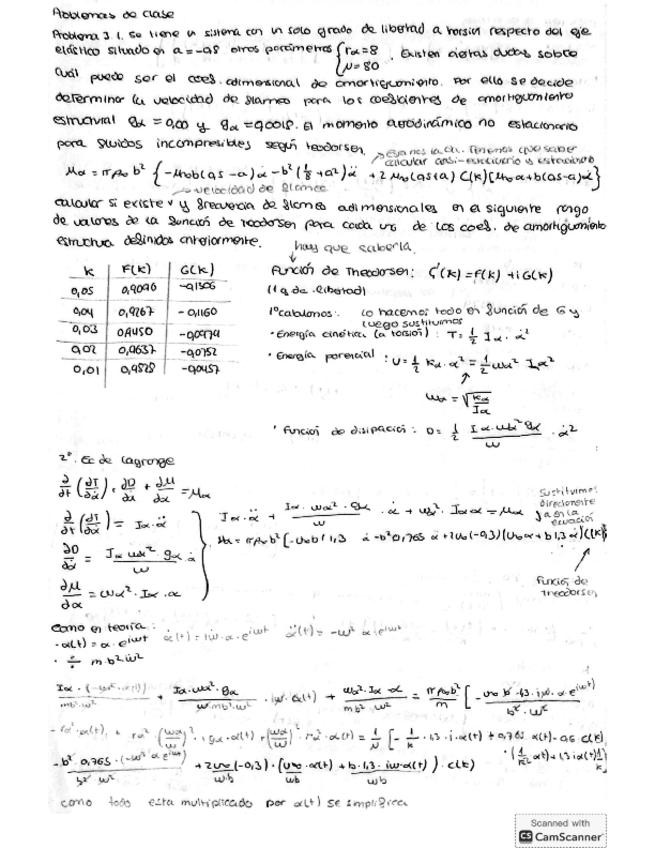 Problemas de clase
Problema 3.1. Se tiene un sistema con un solo grado de libertad a torsión respecto del eje
elástico situado en a = -0,8 otros parámetros { rα = 8
μ = 80 . Existen ciertas dudas sobre
cual puede ser el coef. adimensional de amortiguamiento. Por ello se decide
determinar la velocidad de flameo para los coeficientes de amortiguamiento
estructural gα = 0,00 y gα = 0,0018. El momento aerodinámico no estacionario
para fluidos incompresibles según teodorsen,
Tenemos que saber
calcular casi-estacionario y estacionario
Mα = πρ∞ b² { -μ∞ b(0,5 - a) α̇ - b² (1/8 + a²) α̈ + 2 μ∞ (0,5 + a) C(k) [μ∞ α + b(0,5 - a) α̇ }
velocidad de flameo
calcular si existe v y frecuencia de flameo adimensionales en el siguiente rango
de valores de la función de teodorsen para cada uno de los coef. de amortiguamiento
estructura definidos anteriormente.
hay que saberla
k F(k) G(k)
0,05 0,9090 -0,1306
0,04 0,9267 -0,1160
0,03 0,9450
0,02 0,9637 -0,0752
0,01 0,9828 -0,0457
Función de Theodorsen: C(k) = F(k) + i G(k)
(1 g de libertad)
1º calculamos: lo hacemos todo en función de G y
luego sustituimos
· Energía cinética (a torsión) : T = 1/2 Iα · α̇²
· Energía potencial : U = 1/2 kα · α² = 1/2 ωα² Iα²
ωα = √(kα/Iα)
· Función de disipación : D = 1/2 (Iα · ωα² gα)/ω · α̇²
2º. Ec de Lagrange
∂/∂t (∂T/∂α̇) + ∂D/∂α̇ + ∂U/∂α = Mα
∂/∂t (∂T/∂α̇) = Iα · α̈
∂D/∂α̇ = (Iα ωα² gα)/ω α̇
∂U/∂α = ωα² · Iα · α
Iα · α̈ + (Iα · ωα² · gα)/ω · α̇ + ωα² · Iα α = Mα
Sustituimos
directamente
en la
ecuación
Mα = πρ∞ b² [-U∞ b 1,3 α̇ - b² 0,765 α̈ + 2U∞ (-0,3) (U∞ α + b 1,3 α̇) C(k)]
Función de
theodorsen
Como en teoría:
· α(t) = α · e^iωt α̇(t) = iω · α · e^iωt α̈(t) = -ω² α e^iωt
· ÷ m·b²·ω²
+ (Iα · ωα² · gα)/(ω mb² ω²) · iω · α(t) + (ωα² · Iα · α)/(mb² ω²) = (πρ∞ b²)/m [ - (U∞ b · 1,3 · iω · α e^iωt)/(b² · ω²)
- rα² · α(t) + rα² · (ωα/ω)² · i gα · α(t) + (ωα/ω)² · rα² · α(t) = 1/μ [ - 1/k · 1,3 · i · α(t) + 0,765 α(t) - 0,6 C(k)
· (1/k² α(t) + 1,3 i α(t) 1/k)
- (b² 0,765 · (-ω² α e^iωt))/(b² ω²) + 2U∞ (-0,3) · (U∞ · α(t) + b · 1,3 · iω α(t)) · C(k)
como todo esta multiplicado por α(t) se simplifica
Scanned with
CS CamScanner